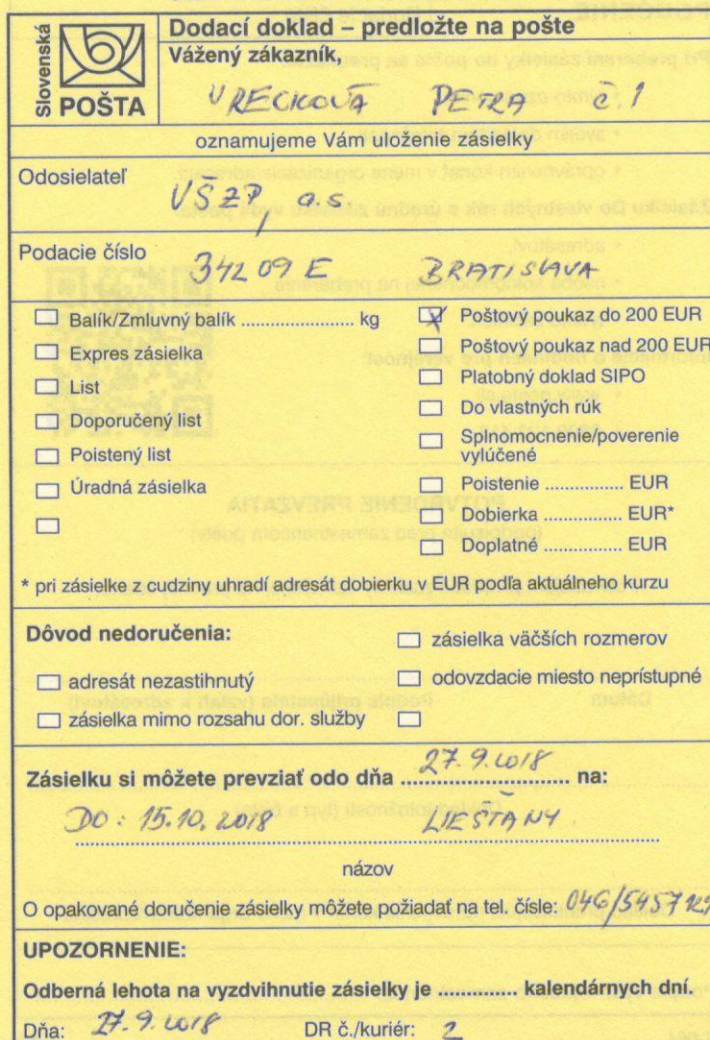 Slovenská
POŠTA
Dodací doklad – predložte na pošte
Vážený zákazník,
VRECKOVÁ PETRA č 1
oznamujeme Vám uloženie zásielky
Odosielateľ
VŠZP, a.s.
Podacie číslo
34209 E BRATISLAVA
Balík/Zmluvný balík .................... kg
Expres zásielka
List
Doporučený list
Poistený list
Úradná zásielka
Poštový poukaz do 200 EUR
Poštový poukaz nad 200 EUR
Platobný doklad SIPO
Do vlastných rúk
Splnomocnenie/poverenie
vylúčené
Poistenie .............. EUR
Dobierka .............. EUR*
Doplatné .............. EUR
* pri zásielke z cudziny uhradí adresát dobierku v EUR podľa aktuálneho kurzu
Dôvod nedoručenia:
zásielka väčších rozmerov
adresát nezastihnutý
odovzdacie miesto neprístupné
zásielka mimo rozsahu dor. služby
Zásielku si môžete prevziať odo dňa 27.9.2018 na:
DO: 15.10.2018 LIEŠŤANY
názov
O opakované doručenie zásielky môžete požiadať na tel. čísle: 046/5457
UPOZORNENIE:
Odberná lehota na vyzdvihnutie zásielky je ............ kalendárnych dní.
Dňa: 27.9.2018 DR č./kuriér: 2